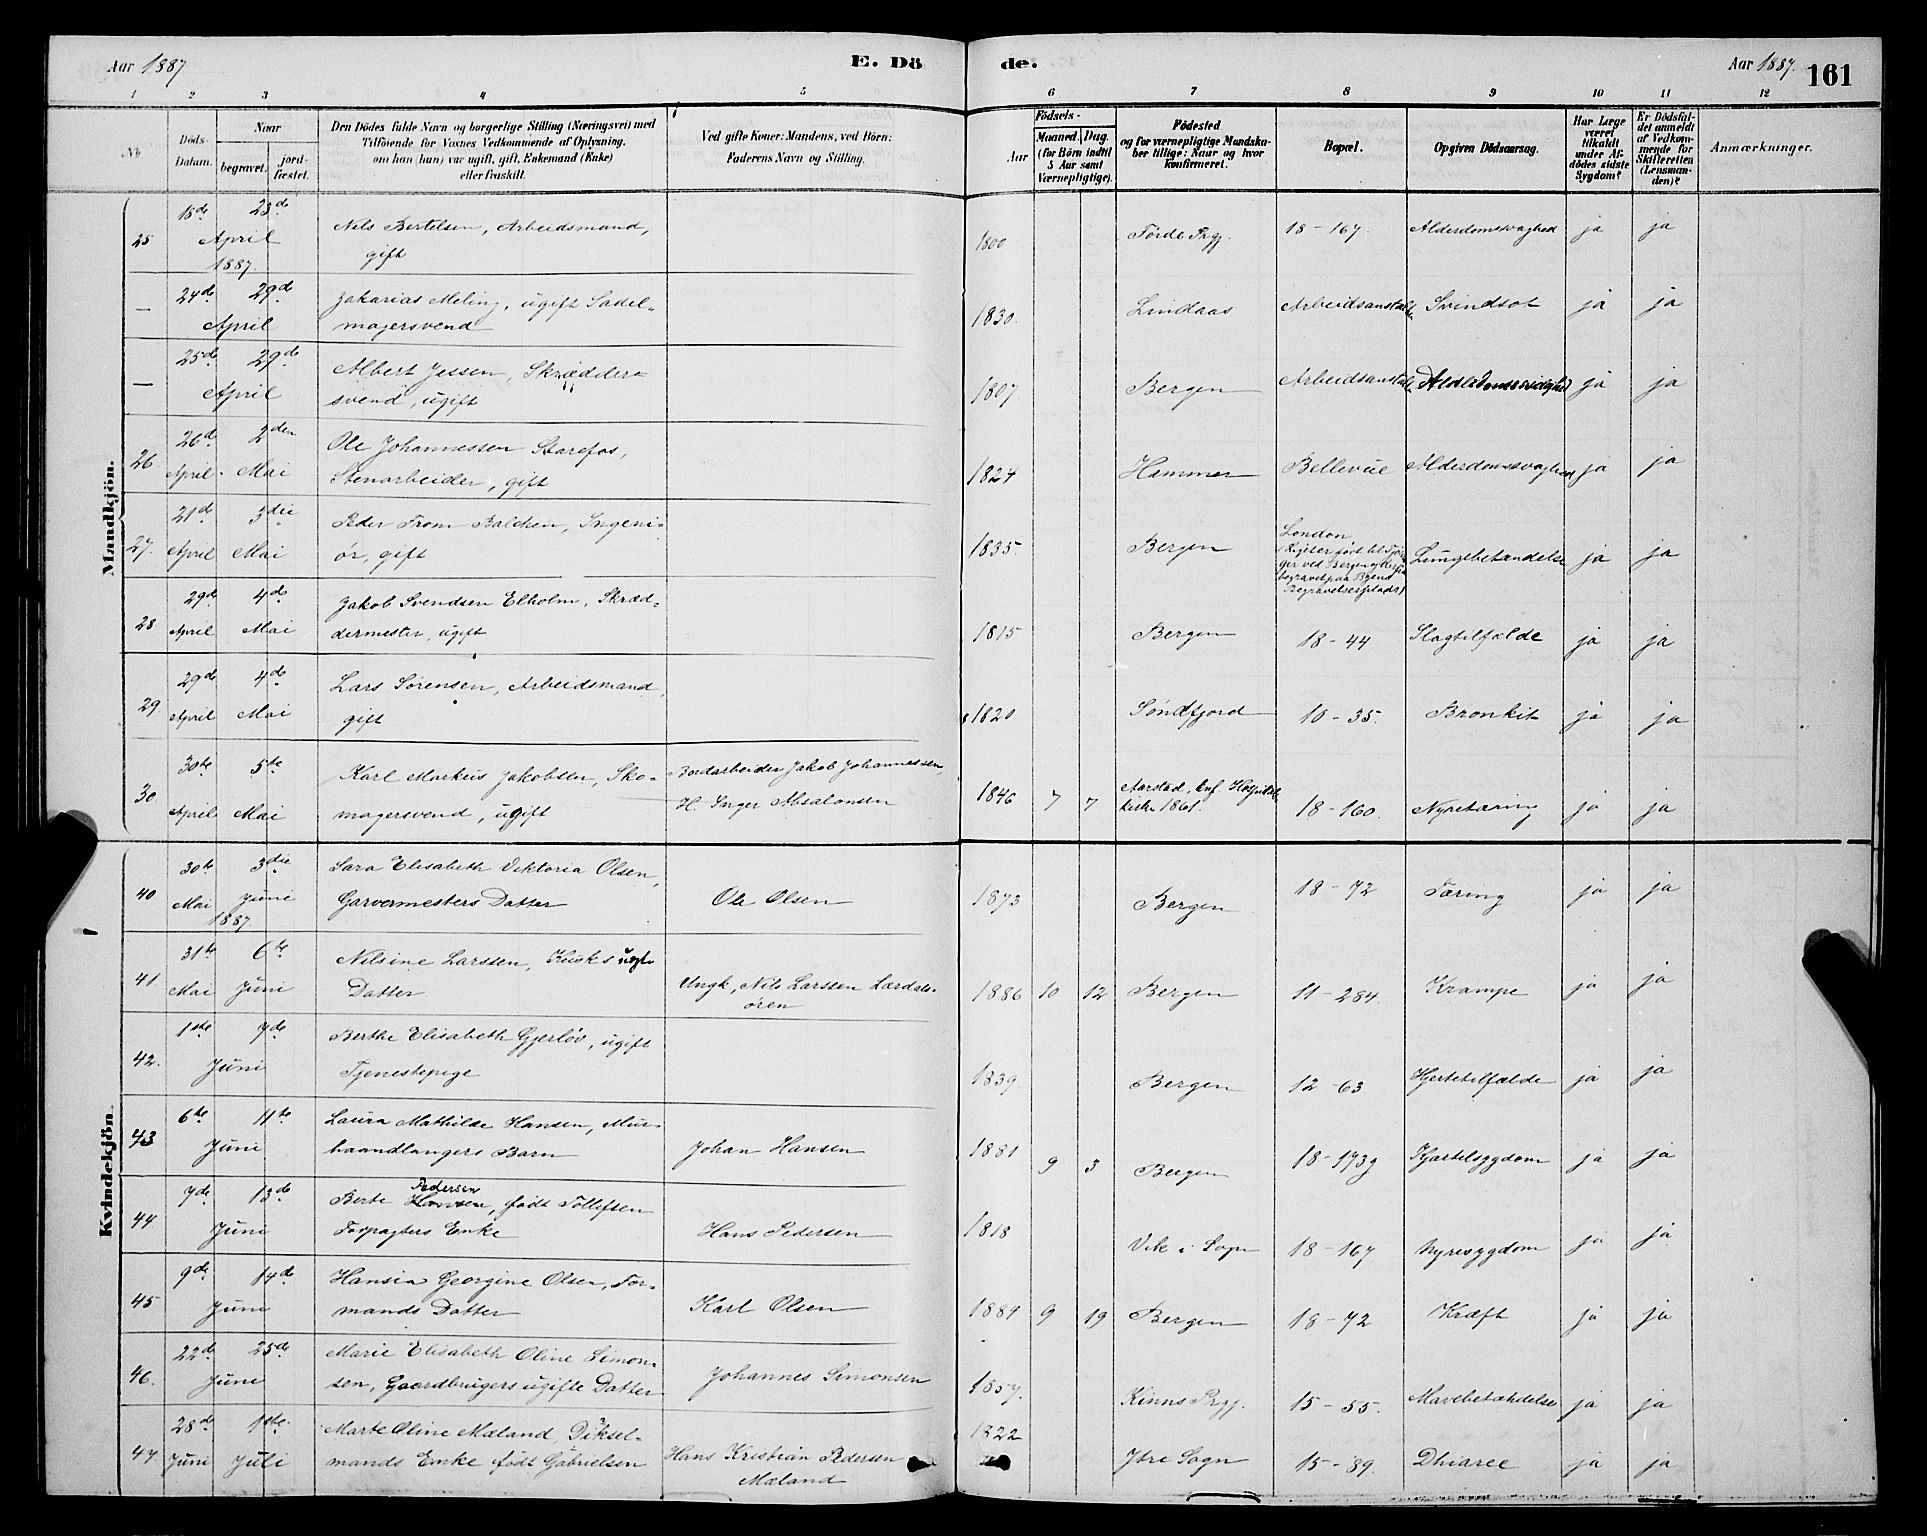 Aar 1887.
E. Dö
de.
Aar 1887.
161
1 2 3 4 5 6 7 8 9 10 11 12
No.
Döds-Datum.
Naar
begravet. jordfæstet.
Den Dödes fulde Navn og borgerlige Stilling (Næringsvei) med
Tilföiende for Voxnes Vedkommende af Oplysning,
om han (hun) var ugift, gift, Enkemand (Enke)
eller fraskilt.
Ved gifte Koner: Mandens, ved Börn:
Faderens Navn og Stilling.
Födsels-
Aar Maaned. Dag.
(for Börn indtil
5 Aar samt
Værnepligtige).
Födested
og for værnepligtige Mandska-
ber tillige: Naar og hvor
konfirmeret.
Bopæl.
Opgiven Dödsaarsag.
Har Læge
været
tilkaldt
under Af-
dödes sidste
Sygdom?
Er Dödsfal-
det anmeldt
af Vedkom-
mende for
Skifteretten
(Lensman-
den)?
Anmærkninger.
Mandkjön.
25 18de 23de April 1887. Nils Bertelsen, Arbeidsmand, gift 1800 Förde Prgj. 18-167. Alderdomssvaghed ja ja
— 24de 29de April Zakarias Meling, ugift Sadel-
magersvend 1830. Lindaas Arbeidsanstalten Svindsot ja ja
— 25de 29de April Albert Jessen, Skrædder-
svend, ugift 1807. Bergen Arbeidsanstalten Alderdomssvaghed ja ja
26. 26de April. 2den Mai Ole Johannessen Starefos,
Stenarbeider, gift 1824 Hammer Bellevue Alderdomssvaghed ja ja
27. 21de April 3die Mai Peder From Balchen, Ingeni-
ör, gift 1835. Bergen London
begravet paa Byens
Begravelsesplads) Lungebetændelse ja ja
28 29de April 4de Mai Jakob Svendsen Elholm, Skræd-
dermester, ugift 1815 Bergen 18-44 Slagtilfælde ja ja
29. 29de April 4de Mai Lars Sörensen, Arbeidsmand,
gift 1820 Söndfjord 10-35. Bronkit ja ja
30. 30te April 5te Mai Karl Markus Jakobsen, Sko-
magersvend, ugift Bordarbeider Jakob Johannessen,
H. Inger Absalonsen 1846 7 7 Aarstad, konf. Hospitals
kirke 1861. 18-160. Nyretæring ja ja
Kvindekjön.
40 30te Mai 3die Juni 1887. Sara Elisabeth Viktoria Olsen,
Garvermesters Datter Ole Olsen 1873 Bergen 18-72 Tæring ja ja
41. 31te Mai 6te Juni Nilsine Larssen, Kusks ugte
Datter Ungk, Nils Larssen Lærdals-
ören 1886 10 12 Bergen 11-284. Krampe ja ja
42. 1ste 7de Juni Berthe Elisabeth Gjerlöv, ugift
Tjenestepige 1839 Bergen 12-63 Hjertetilfælde ja ja
43 6te 11te Juni Laura Mathilde Hansen, Mur-
haandlangers Barn Johan Hansen 1881 9 3 Bergen 18-173g Kjertelsygdom ja ja
44 7de 13de Juni Berte Pedersen, födt Tollefsen
Forpagters Enke Hans Pedersen 1818 Vik i Sogn 18-167 Nyresygdom ja ja
45 9de 14de Juni Hansia Georgine Olsen, For-
mands Datter Karl Olsen 1884 9 19 Bergen 18-72 Kræft ja ja
46. 22de 25de Juni Marie Elisabeth Oline Simon-
sen, Gaardbrugers ugifte Datter Johannes Simonsen 1857. Kinns Prgj. 15-55. Mavebetændelse ja ja
47. 28de Juni 1ste Juli Marte Oline Mæland, Diksel-
mands Enke födt Gabrielsen Hans Kristian Pedersen
Mæland 1822 Ytre Sogn 15-89. Dhiaree ja ja